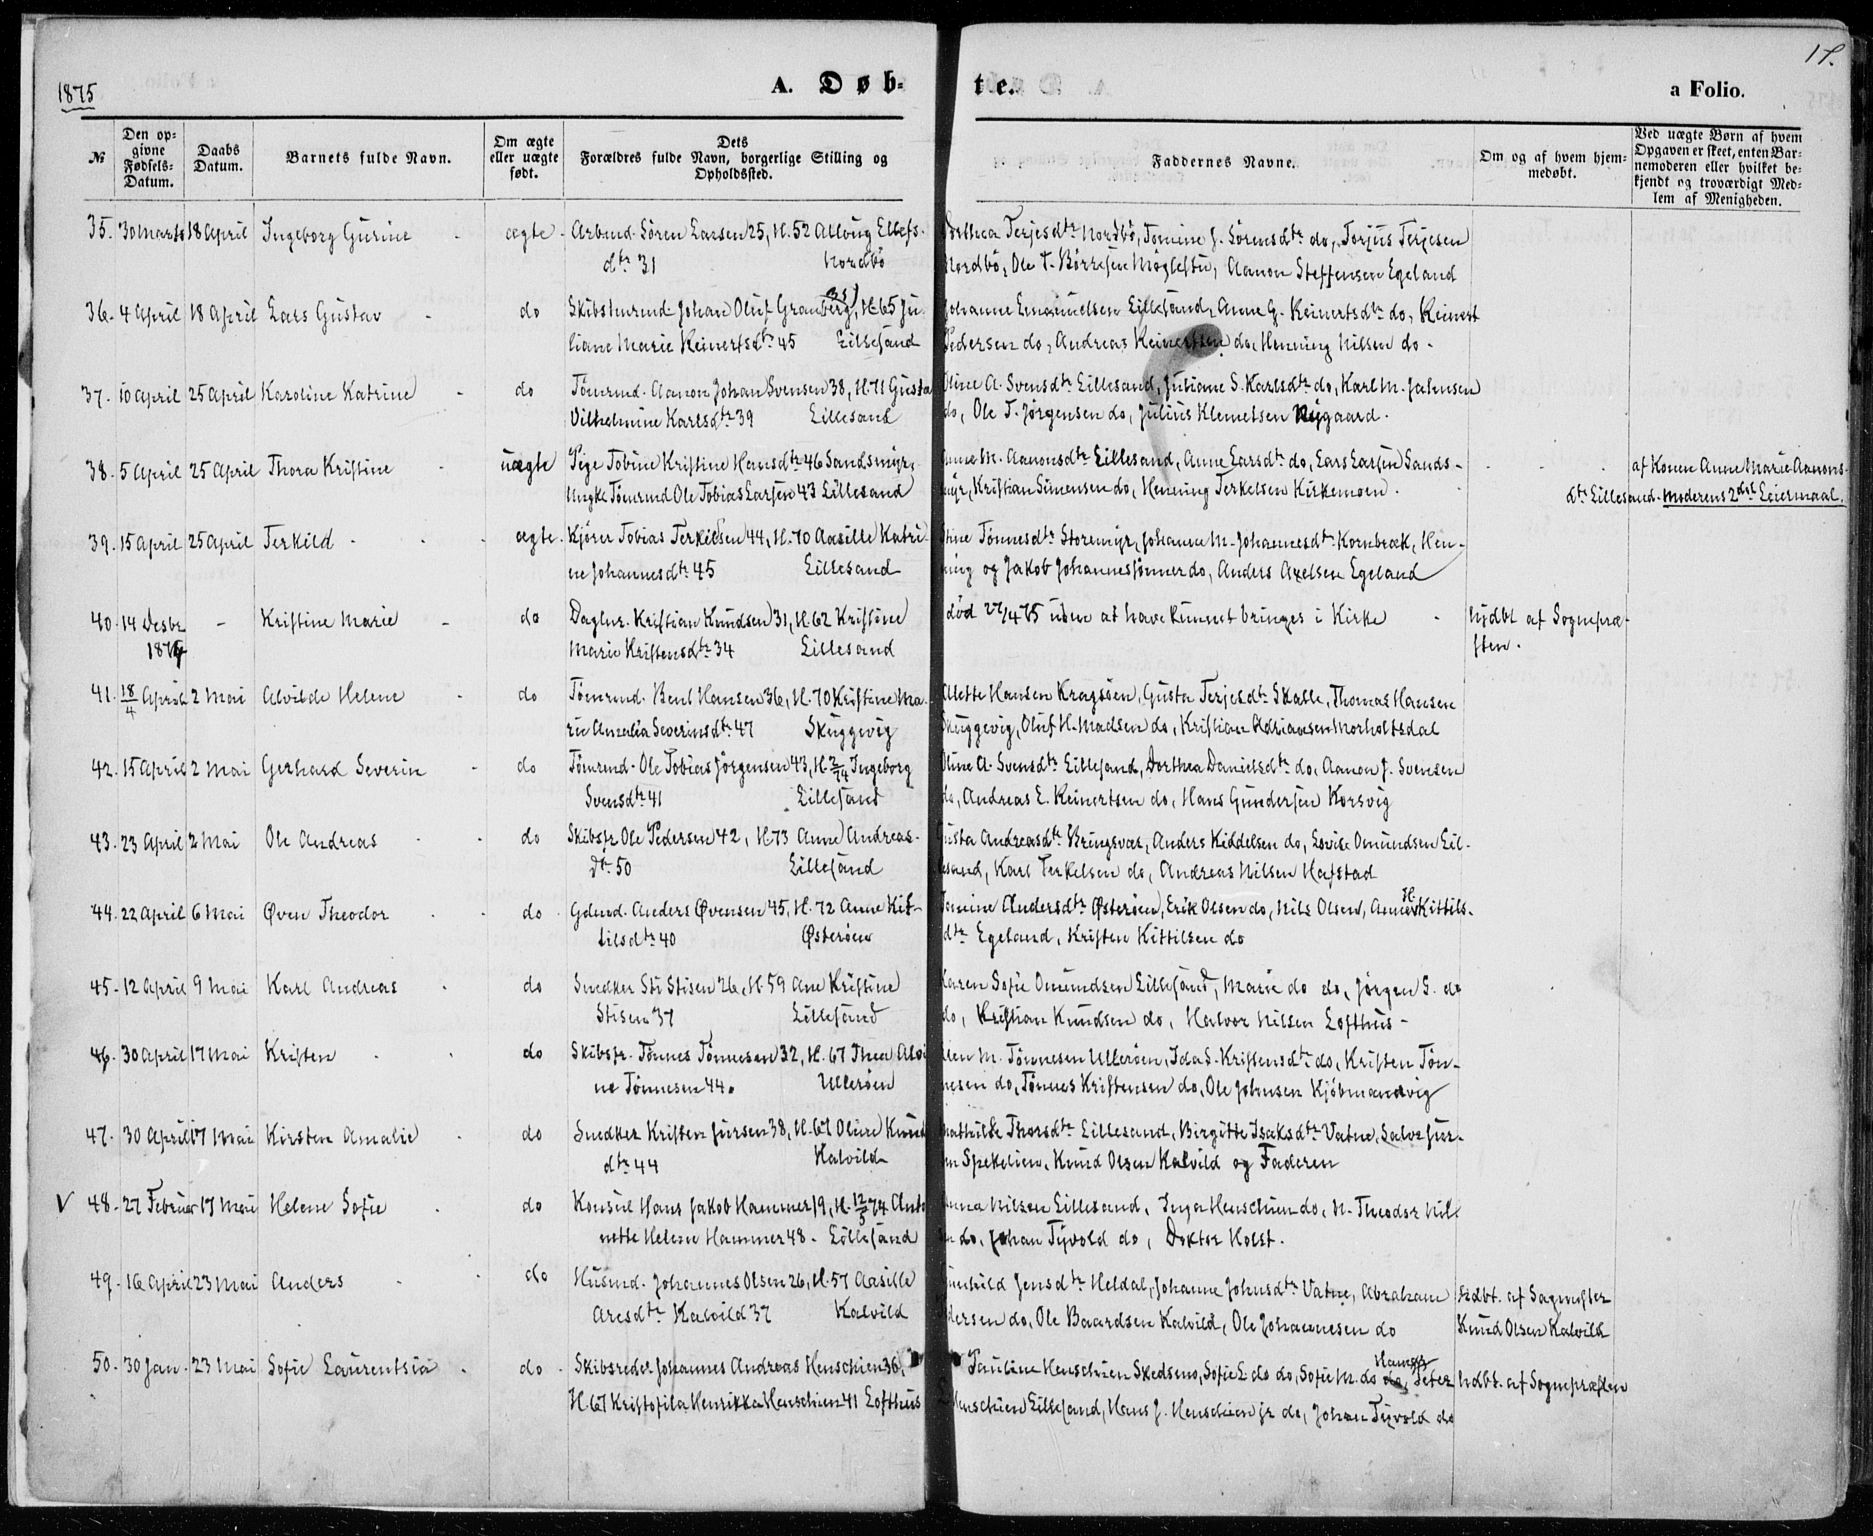 17.
1875
A. Døb-
te.
a Folio.
№
Den op-
givne
Fødsels-
Datum.
Daabs
Datum.
Barnets fulde Navn.
Om ægte
eller uægte
født.
Dets
Forældres fulde Navn, borgerlige Stilling og
Opholdssted.
Faddernes Navne.
Om og af hvem hjem-
medøbt.
Ved uægte Børn af hvem
Opgaven er skeet, enten Bar-
nemoderen eller hvilket be-
kjendt og troværdigt Med-
lem af Menigheden.
35. 30 Marts 18 April Ingeborg Gurine - ægte. Arbmd. Sören Larsen 25, H. 52 Allvug Ellefs- Terjesdtr Nordbö, Tomine J. Sörensdtr do, Torjus Terjesen
dtr 31 Nordbö Nordbö, Ole T. Börresen Möglestu, Aanon Steffensen Egeland
36. 4 April 18 April Lars Gustav - do Skibstmrmd Johan Oluf Granberg 35, H. 65 Ju- Johanne Emanuelsen Lillesand, Anne G. Reinertsdtr do, Reinert
liane Marie Reinertsdtr 45 Lillesand Pedersen do, Andreas Reinertsen do, Henning Nilsen do -
37. 10 April 25 April Karoline Katrine - do Tömrmd. Aanon Johan Svensen 38, H. 71 Gusta Oline A. Svensdtr Lillesand, Juliane S. Karlsdtr do, Karl M. Jahnsen
Vilhelmine Karlsdtr 39 Lillesand do, Ole T. Jörgensen do, Julius Klemetsen Nygaard.
38. 5 April 25 April Thora Kristine - uægte Pige Tobine Kristine Hansdtr 46 Sandsmyr, Anne M. Aanonsdtr Lillesand, Anne Larsdtr do, Lars Larsen Sands- - - - af Konen Anne Marie Aanons-
Ungke Tömrmd Ole Tobias Larsen 43 Lillesand myr, Kristian Simensen do, Henning Terkelsen Kirkemoen. dtr Lillesand - Moderens 2det Leiermaal.
39. 15 April 25 April Terkild - - - ægte. Kjörer Tobias Terkilsen 44, H. 70 Aasille Katri- Stine Tönnesdtr Storemyr, Johanne M. Johannesdtr Kornbræk, Hen-
ne Johannesdtr 45 Lillesand ning og Jakob Johannesönner do, Anders Axelsen Egeland
40. 14 Desbr - Kristine Marie - do Daglnr. Kristian Knudsen 31, H. 62 Kristine död 27/4 75 uden at have kunnet bringes i Kirke - hjdbt af Sognepræ-
1874 Marie Kristensdtr 34 Lillesand sten.
41. 18/4 April 2 Mai Alvilde Helene - do Tömrmd. Bent Hansen 36, H. 70 Kristine Ma- Alette Hansen Kragsöen, Gusta Terjesdtr Skalle, Thomas Hansen
rie Amalia Severinsdtr 47 Skuggevig Skuggevig, Oluf H. Madsen do, Kristian Adriansen Morholtsdal
42. 15 April 2 Mai Gerhard Severin - do Tömrmd. Ole Tobias Jörgensen 43, H. 2/74 Ingeborg Oline A. Svensdtr Lillesand, Dorthea Danielsdtr do, Aanon J. Svensen
Svensdtr 41 Lillesand do, Andreas E. Reinertsen do, Hans Gundersen Korsvig
43. 23 April 2 Mai Ole Andreas - - do Skibsfr. Ole Pedersen 42, H. 73 Anne Andreas- Gusta Andreasdtr Bringsvær, Anders Kiddelsen do, Lovise Omundsen Lil-
dtr 50 Lillesand lesand, Karl Terkelsen do, Andreas Nilsen Hafstad
44. 22 April 6 Mai Øven Theodor - - do. Gdmd. Anders Øvensen 45, H. 72 Anne Kit- Tomine Andersdtr Østeröen, Erik Olsen do, Nils Olsen, Anne H. Kittils-
tilsdtr 40 Østeröen dtr Egeland, Kristen Kittilsen do
45. 12 April 9 Mai Karl Andreas - do Snedker Sti Stisen 26, H. 59 Ane Kristine Karen Sofie Omundsen Lillesand, Marie do do, Jörgen S. do
Stisen 37 Lillesand do, Kristian Knudsen do, Halvor Nilsen Lofthus -
46. 30 April 17 Mai Kristen - - do Skibsfr. Tönnes Tönnesen 32, H. 67 Thea Alvi- M. Tönnesen Ulleröen, Ida S. Kristensdtr do, Kristen Tön-
ne Tönnesen 44. Ulleröen nesen do, Tönnes Kristensen do, Ole Johnsen Kjöbmandvig
47. 30 April 17 Mai Kirsten Amalie - do Snedker Kristen Jursen 38, H. 67 Oline Knuds Mathilde Thorsdtr Lillesand, Birgitte Isaksdtr Vatne, Salve Jur-
dtr 44 Kalvild Spekelien, Knud Olsen Kalvild og Faderen
V 48. 27 Februar 17 Mai Helene Sofie - do Konsul Hans Jakob Hammer 19, H. 12/5 74 Anto- Anna Nilsen Lillesand, Inga Henschien do, N. Theodor Nil-
nette Helene Hammer 48 - Lillesand do, Johan Tyvold do, Doktor Holst.
49. 16 April 23 Mai Anders - - do Husmd. Johannes Olsen 26, H. 57 Aasille Gunhild Jensdtr Heldal, Johanne Johnsdtr Vatne, Abraham hdbt. af Sagmester
Aresdtr Kalvild 37 Kalvild Pedersen do, Ole Baardsen Kalvild, Ole Johannesen do Knud Olsen Kalvild
50. 30 Jan. 23 Mai Sofie Laurentsia - do. Skibsreder Johannes Andreas Henschien 36, Pauline Henschien Skedsmo, Sofie L. do do, Sofie M. do do Hamar, Peter hdbt. af Sognepræsten
H. 67 Kristofila Henrikka Henschien 41 Lofthus Henschien Lillesand, Hans J. Henschien jr do, Johan Tyvold do